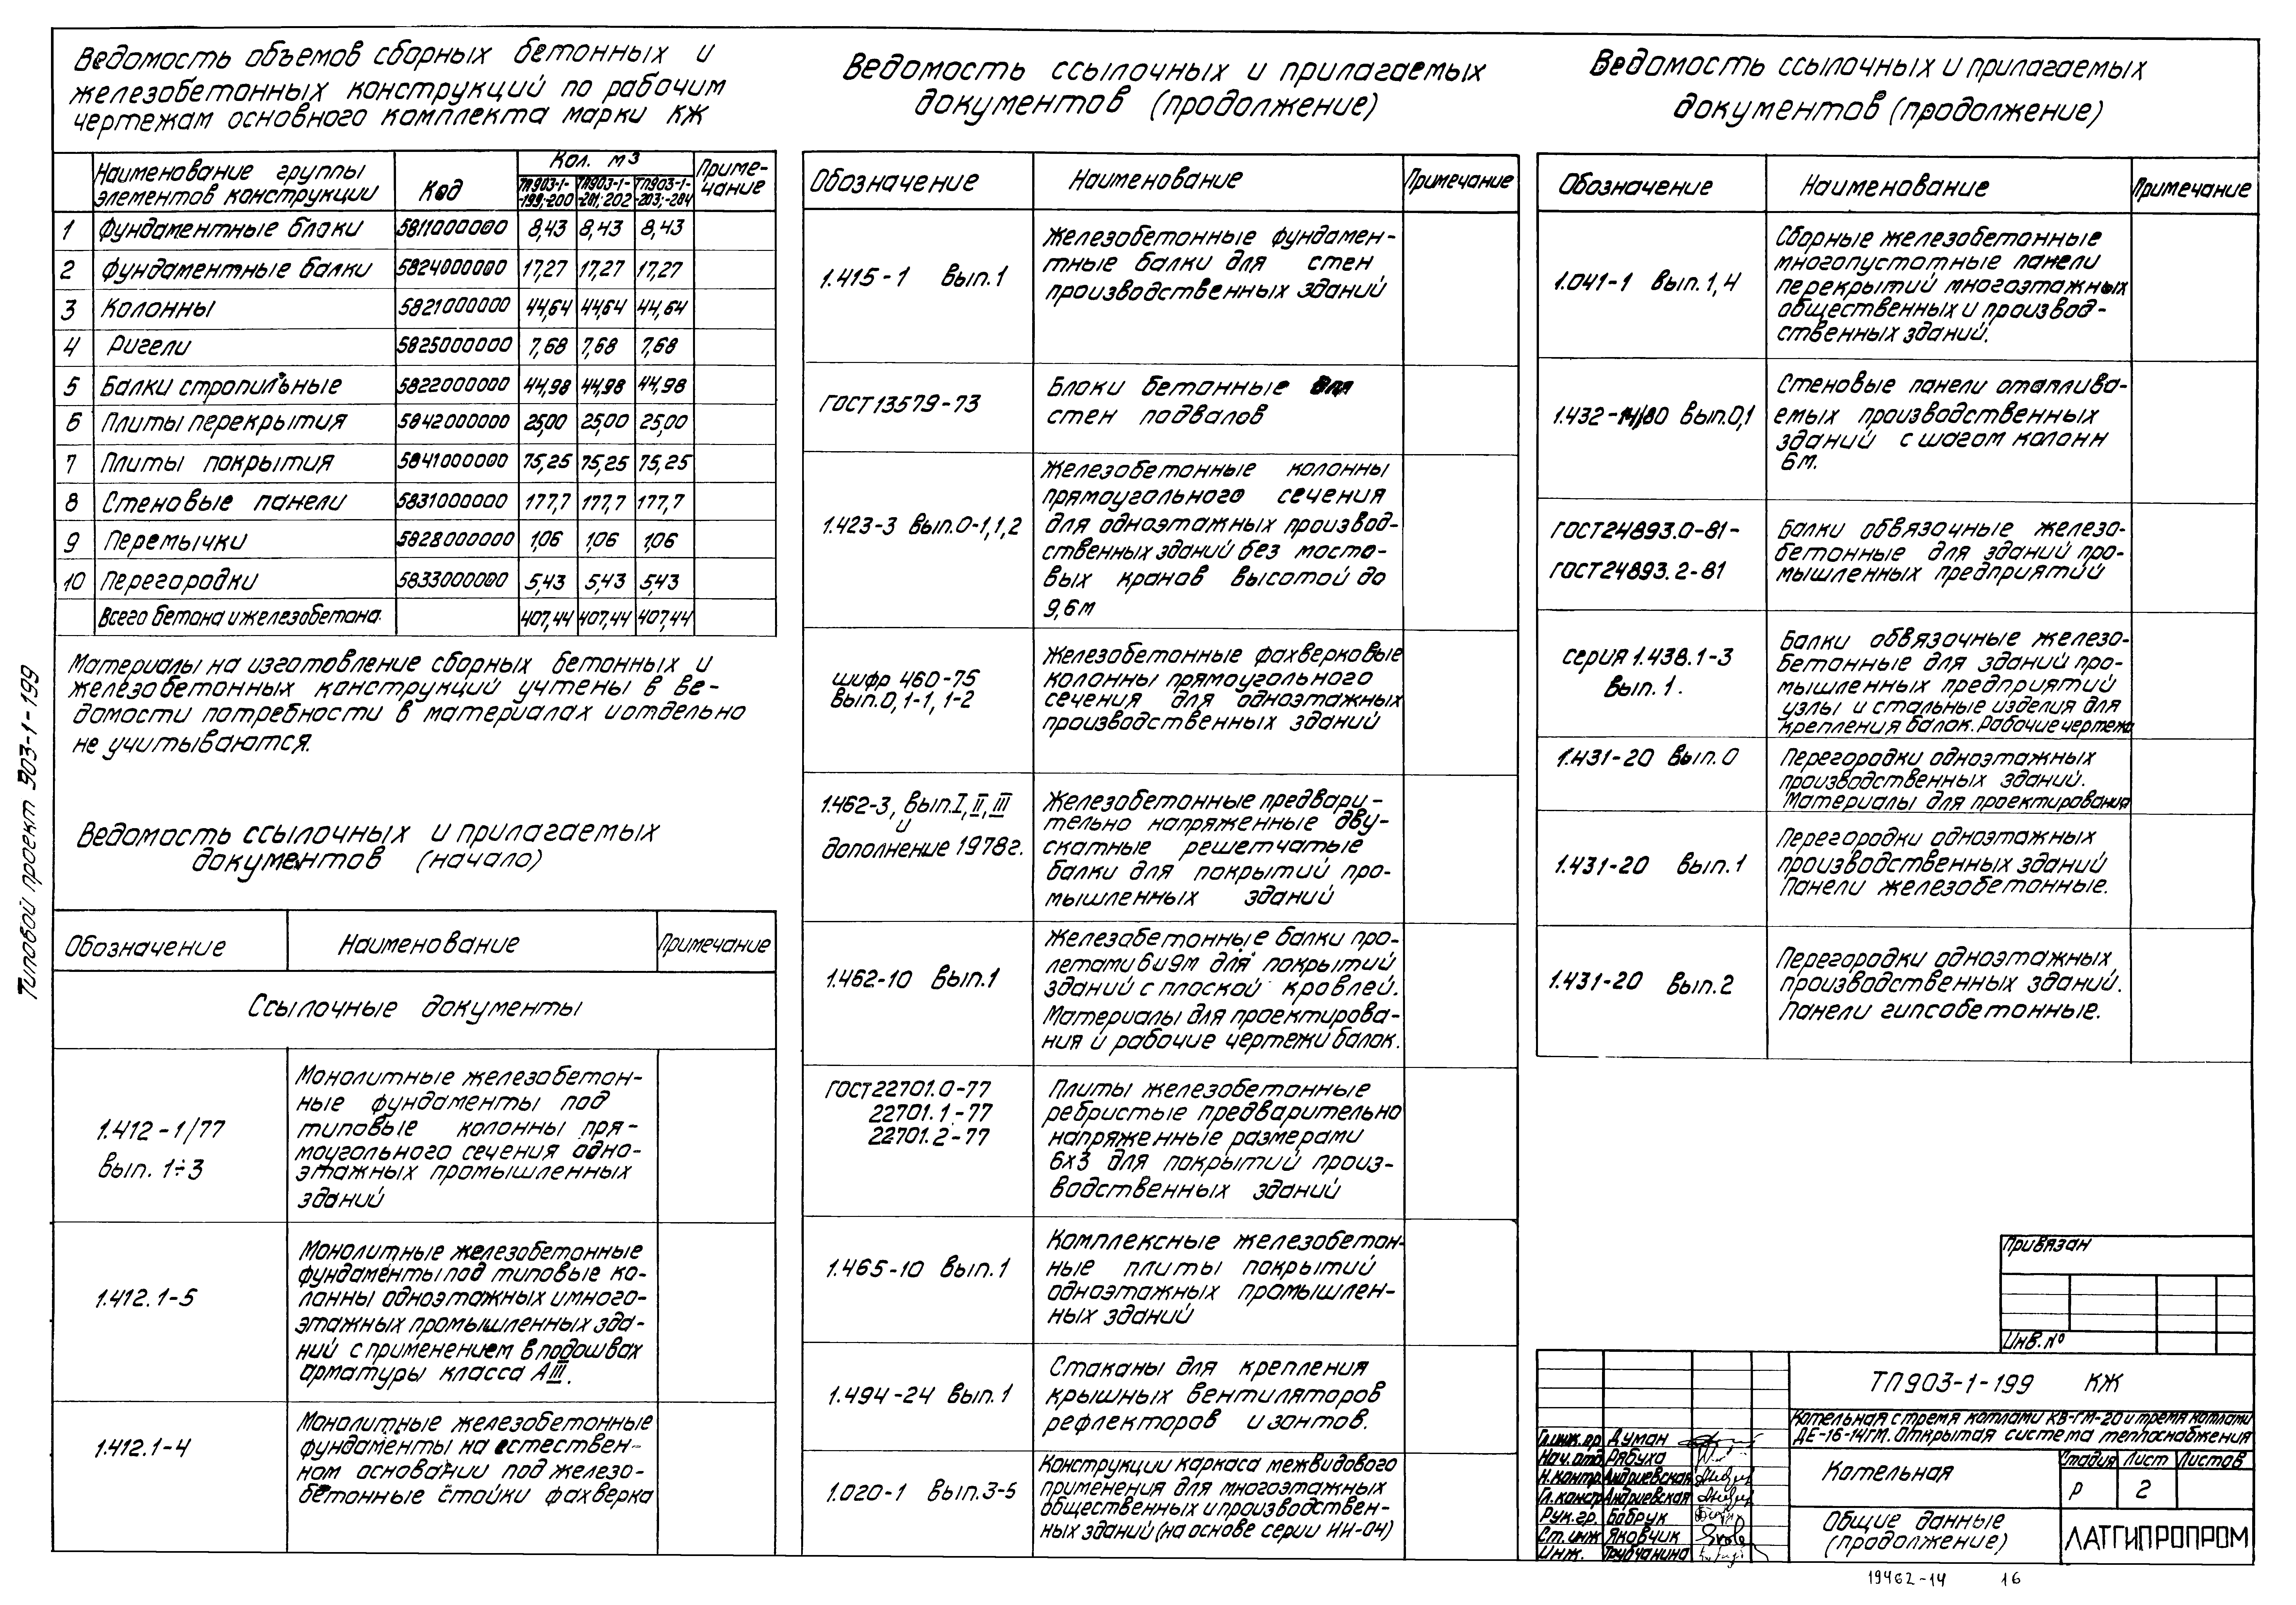 Ведомость объемов сборных бетонных и
железобетонных конструкций по рабочим
чертежам основного комплекта марки КЖ
Наименование группы элементов конструкции Код Кол. м3 Примечание
ТП903-1-199;-200 ТП903-1-201;-202 ТП903-1-203;-204
1 Фундаментные блоки 5811000000 8,43 8,43 8,43
2 Фундаментные балки 5824000000 17,27 17,27 17,27
3 Колонны 5821000000 44,64 44,64 44,64
4 Ригели 5825000000 7,68 7,68 7,68
5 Балки стропильные 5822000000 44,98 44,98 44,98
6 Плиты перекрытия 5842000000 25,00 25,00 25,00
7 Плиты покрытия 5841000000 75,25 75,25 75,25
8 Стеновые панели 5831000000 177,7 177,7 177,7
9 Перемычки 5828000000 1,06 1,06 1,06
10 Перегородки 5833000000 5,43 5,43 5,43
Всего бетона и железобетона. 407,44 407,44 407,44
Материалы на изготовление сборных бетонных и
железобетонных конструкций учтены в ве-
домости потребности в материалах и отдельно
не учитываются.
Ведомость ссылочных и прилагаемых
документов (начало)
Обозначение Наименование Примечание
Ссылочные документы
1.412-1/77
вып. 1÷3
Монолитные железобетон-
ные фундаменты под
типовые колонны пря-
моугольного сечения одно-
этажных промышленных
зданий
1.412.1-5
Монолитные железобетонные
фундаменты под типовые ко-
лонны одноэтажных и много-
этажных промышленных зда-
ний с применением в подошвах
арматуры класса АIII.
1.412.1-4
Монолитные железобетонные
фундаменты на естествен-
ном основании под железо-
бетонные стойки фахверка
Ведомость ссылочных и прилагаемых
документов (продолжение)
Обозначение Наименование Примечание
1.415-1 вып.1
Железобетонные фундамен-
тные балки для стен
производственных зданий
ГОСТ 13579-73
Блоки бетонные для
стен подвалов
1.423-3 вып.0-1,1,2
Железобетонные колонны
прямоугольного сечения
для одноэтажных производ-
ственных зданий без мосто-
вых кранов высотой до
9,6м
шифр 460-75
вып.0,1-1, 1-2
Железобетонные фахверковые
колонны прямоугольного
сечения для одноэтажных
производственных зданий
1.462-3, вып.I, II, III
и
дополнение 1978г.
Железобетонные предвари-
тельно напряженные дву-
скатные решетчатые
балки для покрытий про-
мышленных зданий
1.462-10 вып.1
Железобетонные балки про-
летами 6 и 9м для покрытий
зданий с плоской кровлей.
Материалы для проектирова-
ния и рабочие чертежи балок.
ГОСТ 22701.0-77
22701.1-77
22701.2-77
Плиты железобетонные
ребристые предварительно
напряженные размерами
6х3 для покрытий произ-
водственных зданий
1.465-10 вып.1
Комплексные железобетон-
ные плиты покрытий
одноэтажных промышлен-
ных зданий
1.494-24 вып.1
Стаканы для крепления
крышных вентиляторов
рефлекторов и зонтов.
1.020-1 вып.3-5
Конструкции каркаса межвидового
применения для многоэтажных
общественных и производствен-
ных зданий (на основе серии ИИ-04)
Ведомость ссылочных и прилагаемых
документов (продолжение)
Обозначение Наименование Примечание
1.041-1 вып.1,4
Сборные железобетонные
многопустотные панели
перекрытий многоэтажных
общественных и производ-
ственных зданий.
1.432-14/80 вып.0,1
Стеновые панели отаплива-
емых производственных
зданий с шагом колонн
6м.
ГОСТ 24893.0-81-
ГОСТ 24893.2-81
Балки обвязочные железо-
бетонные для зданий про-
мышленных предприятий
серия 1.438.1-3
вып. 1.
Балки обвязочные железо-
бетонные для зданий про-
мышленных предприятий
узлы и стальные изделия для
крепления балок. Рабочие чертежи
1.431-20 вып.0
Перегородки одноэтажных
производственных зданий.
Материалы для проектирования
1.431-20 вып.1
Перегородки одноэтажных
производственных зданий
Панели железобетонные.
1.431-20 вып.2
Перегородки одноэтажных
производственных зданий.
Панели гипсобетонные.
Типовой проект 903-1-199
Привязан
Инв.№
ТП903-1-199 КЖ
Котельная с тремя котлами КВ-ГМ-20 и тремя котлами
ДЕ-16-14ГМ. Открытая система теплоснабжения
Гл.инж.пр. Думан
Нач.отд. Рябуха
Н.контр. Андриевская
Гл.констр. Андриевская
Рук.гр. Бобрук
Ст.инж Яковчик
Инж. Трубчанина
Котельная
Стадия Лист Листов
Р 2
Общие данные
(продолжение)
ЛАТГИПРОПРОМ
19462-14 16